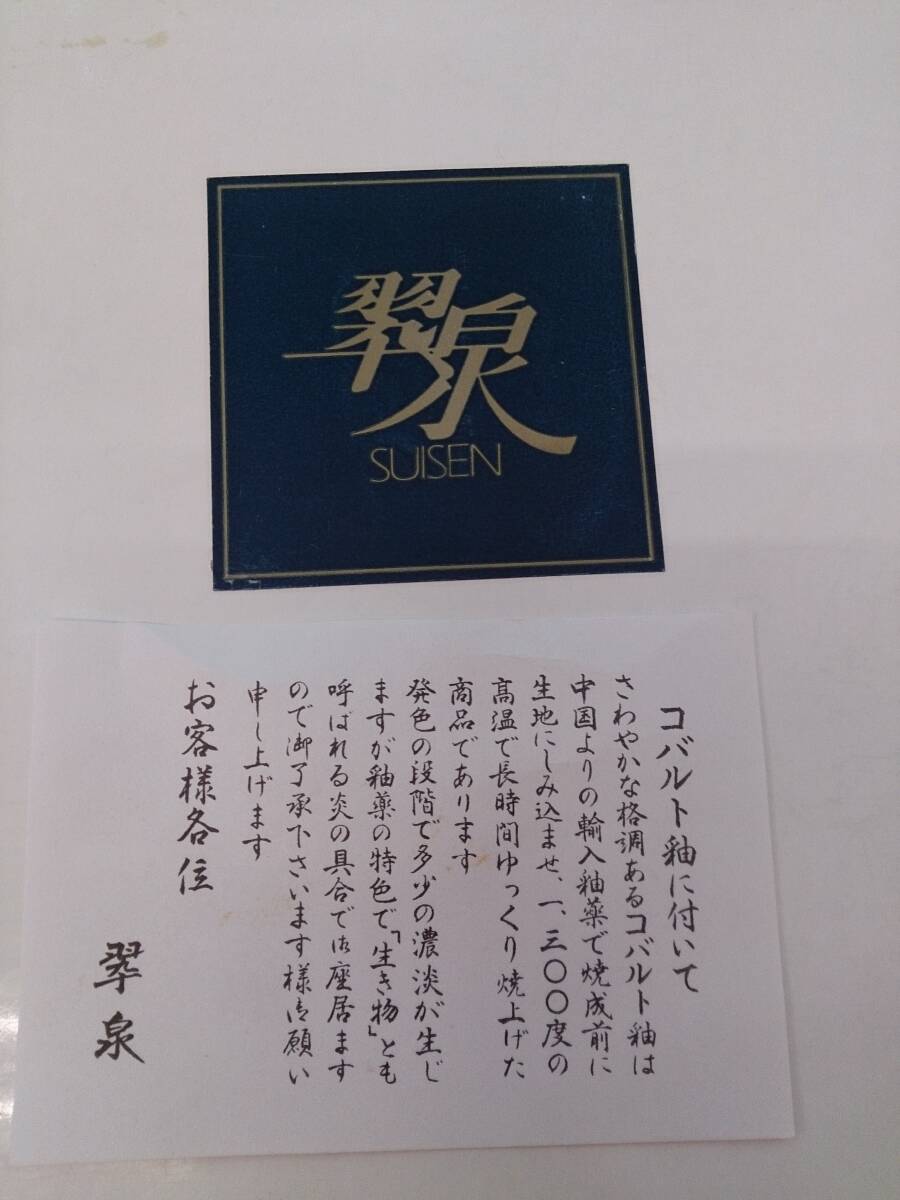 翠泉
SUISEN
コバルト釉に付いて
さわやかな格調あるコバルト釉は
中国よりの輸入釉薬で焼成前に
生地にしみ込ませ、一、三〇〇度の
高温で長時間ゆっくり焼上げた
商品であります
発色の段階で多少の濃淡が生じ
ますが釉薬の特色で「生き物」とも
呼ばれる炎の具合で御座居ます
ので御了承下さいます様御願い
申し上げます
お客様各位
翠泉